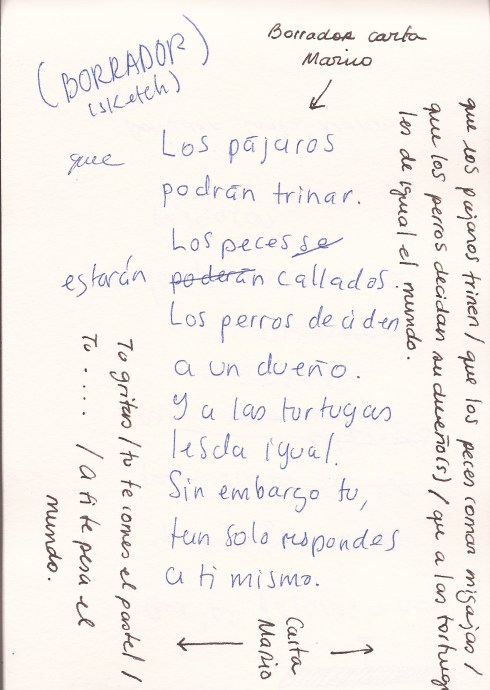 (BORRADOR)
(sketch)
Borrador carta
Mario
que Los pájaros
podrán trinar.
Los peces se
estarán poderán callados.
Los perros deciden
a un dueño.
Y a las tortugas
les da igual.
Sin embargo tu,
tan solo respondes
a ti mismo.
que los pájaros trinen / que los peces coman migajas /
que los perros decidan su dueño(s) / que a las tortugas
les de igual el mundo.
Tu gritas / tu te comes el pastel /
Tu .... / A ti te pesa el
mundo.
Carta
Mario